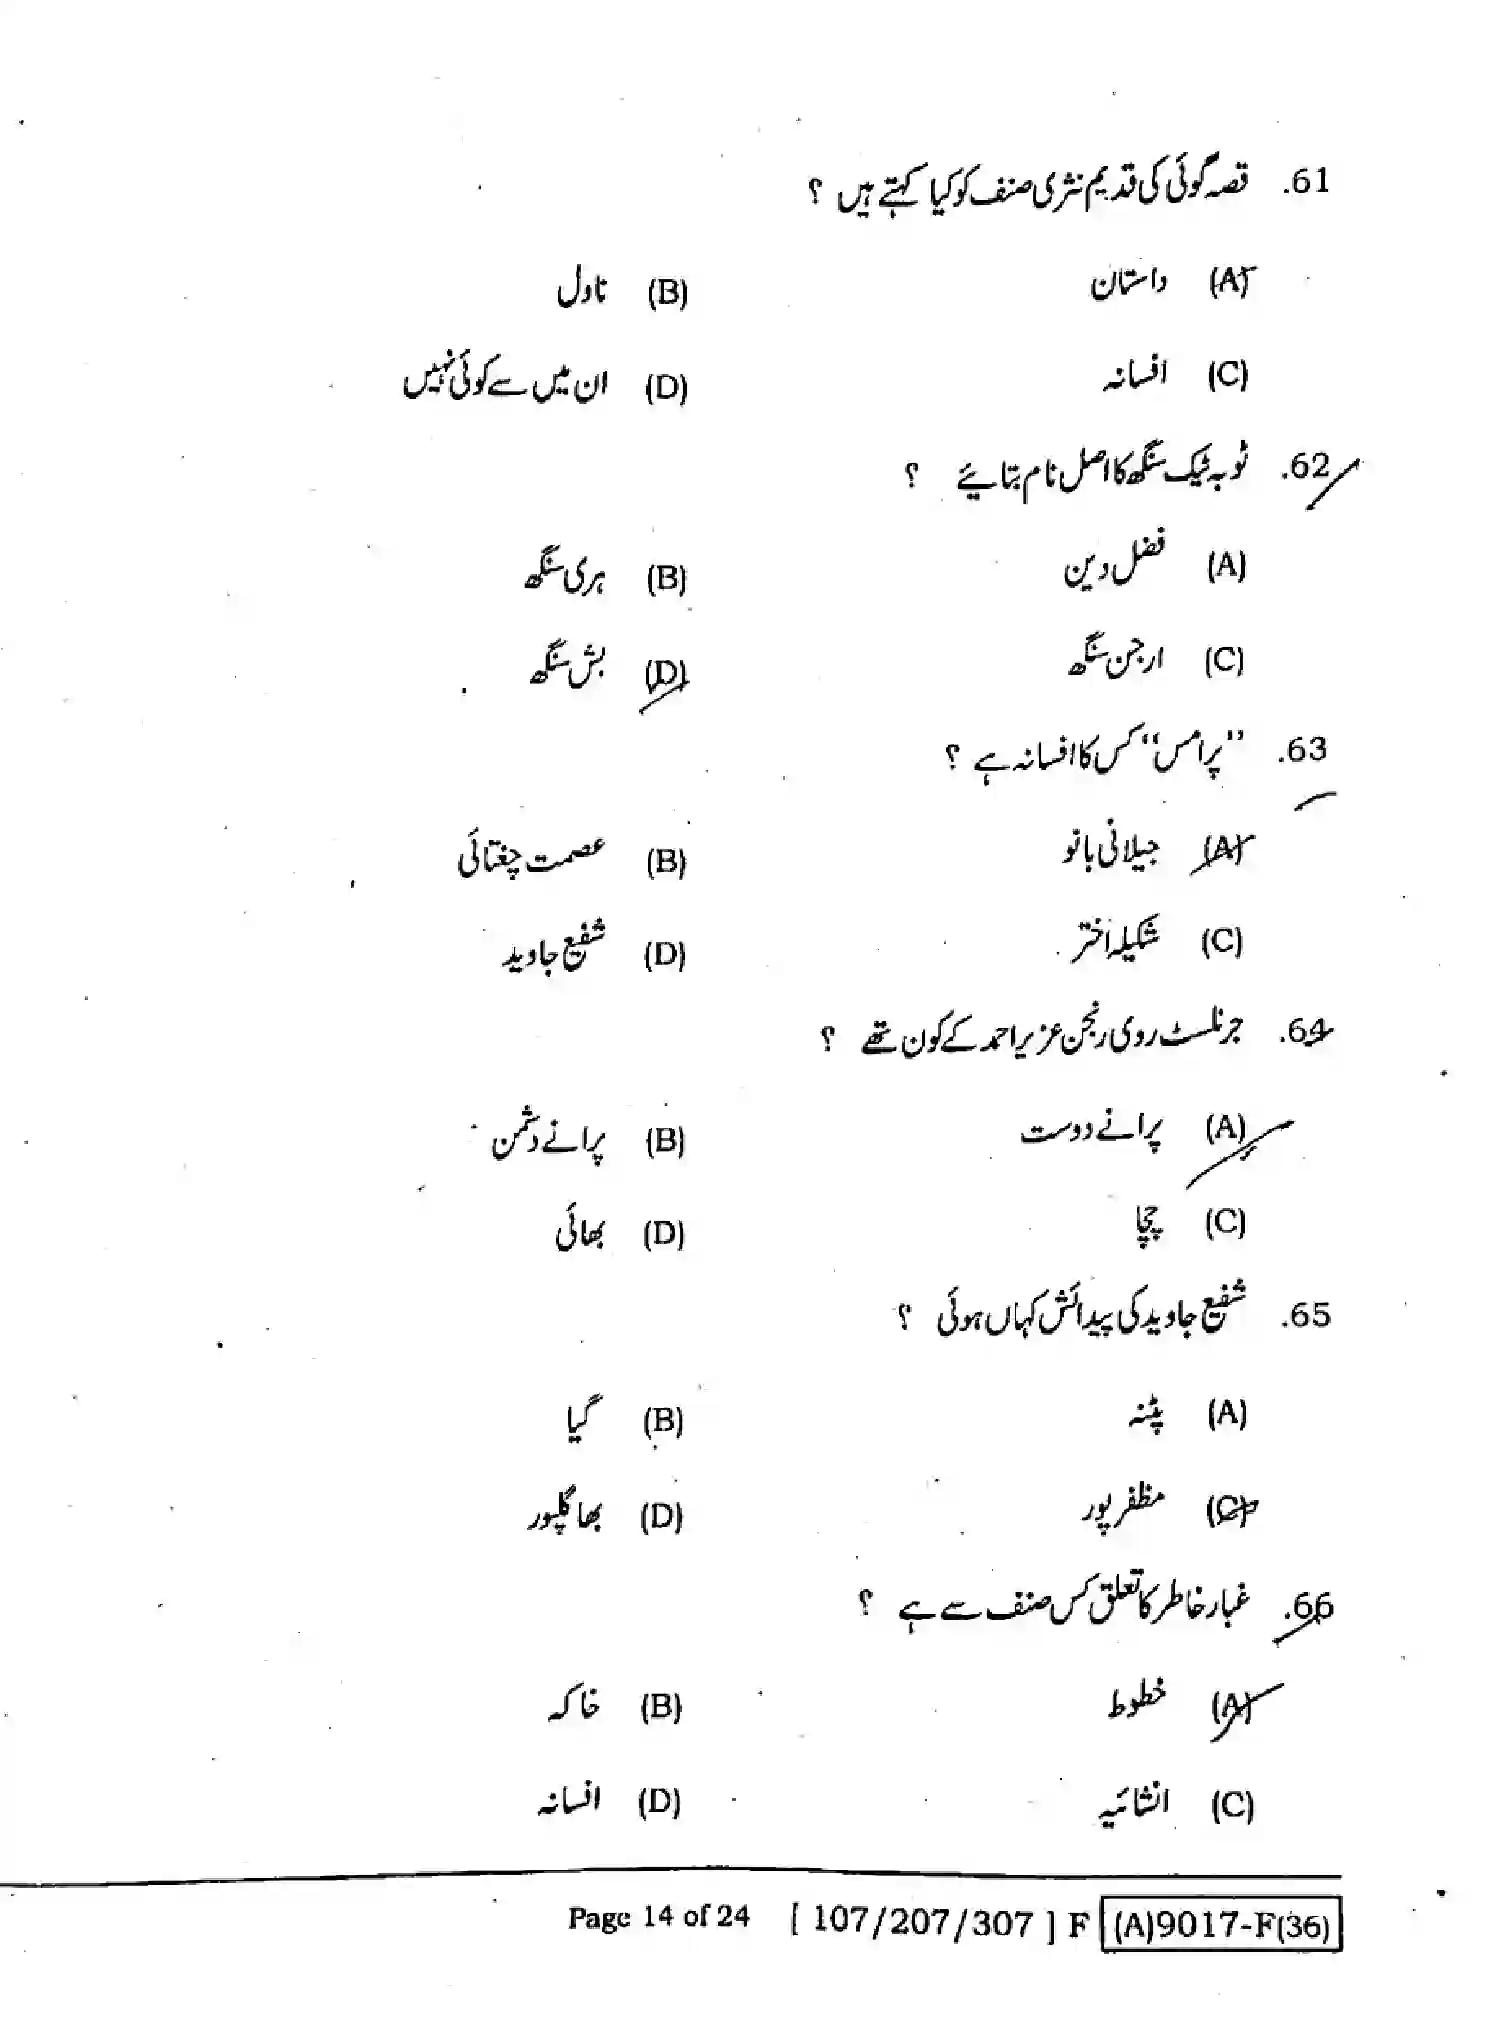 61. قصہ گوئی کی قدیم نثری صنف کو کیا کہتے ہیں ؟
(A) داستان (B) ناول
(C) افسانہ (D) ان میں سے کوئی نہیں
62. ٹوبہ ٹیک سنگھ کا اصل نام بتائیے ؟
(A) فضل دین (B) ہری سنگھ
(C) ارجن سنگھ (D) بشن سنگھ
63. ”پرامس“ کس کا افسانہ ہے ؟
(A) جیلانی بانو (B) عصمت چغتائی
(C) شکیلہ اختر (D) شفیع جاوید
64. جرنلسٹ روی رنجن عزیر احمد کے کون تھے ؟
(A) پرانے دوست (B) پرانے دشمن
(C) چچا (D) بھائی
65. شفیع جاوید کی پیدائش کہاں ہوئی ؟
(A) پٹنہ (B) گیا
(C) مظفر پور (D) بھاگلپور
66. غبار خاطر کا تعلق کس صنف سے ہے ؟
(A) خطوط (B) خاکہ
(C) انشائیہ (D) افسانہ
Page 14 of 24 [ 107/207/307 ] F (A)9017-F(36)